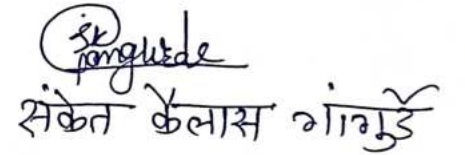 SK
Gangurde
संकेत कैलास गांगुर्डे